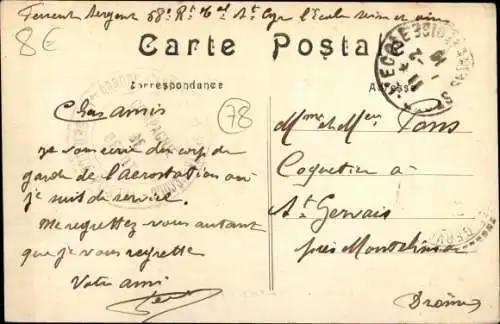 8€
Sergent 68e
Carte Postale
Correspondance
Adresse
78
Chers amis
je vous écris du corps de
garde de l'aerostation où
je suit de service.
Me regrettez vous autant
que je vous regrette
Votre ami
Mme et Mr Pons
Coquetier à
St Gervais
près Montelimar
Drôme